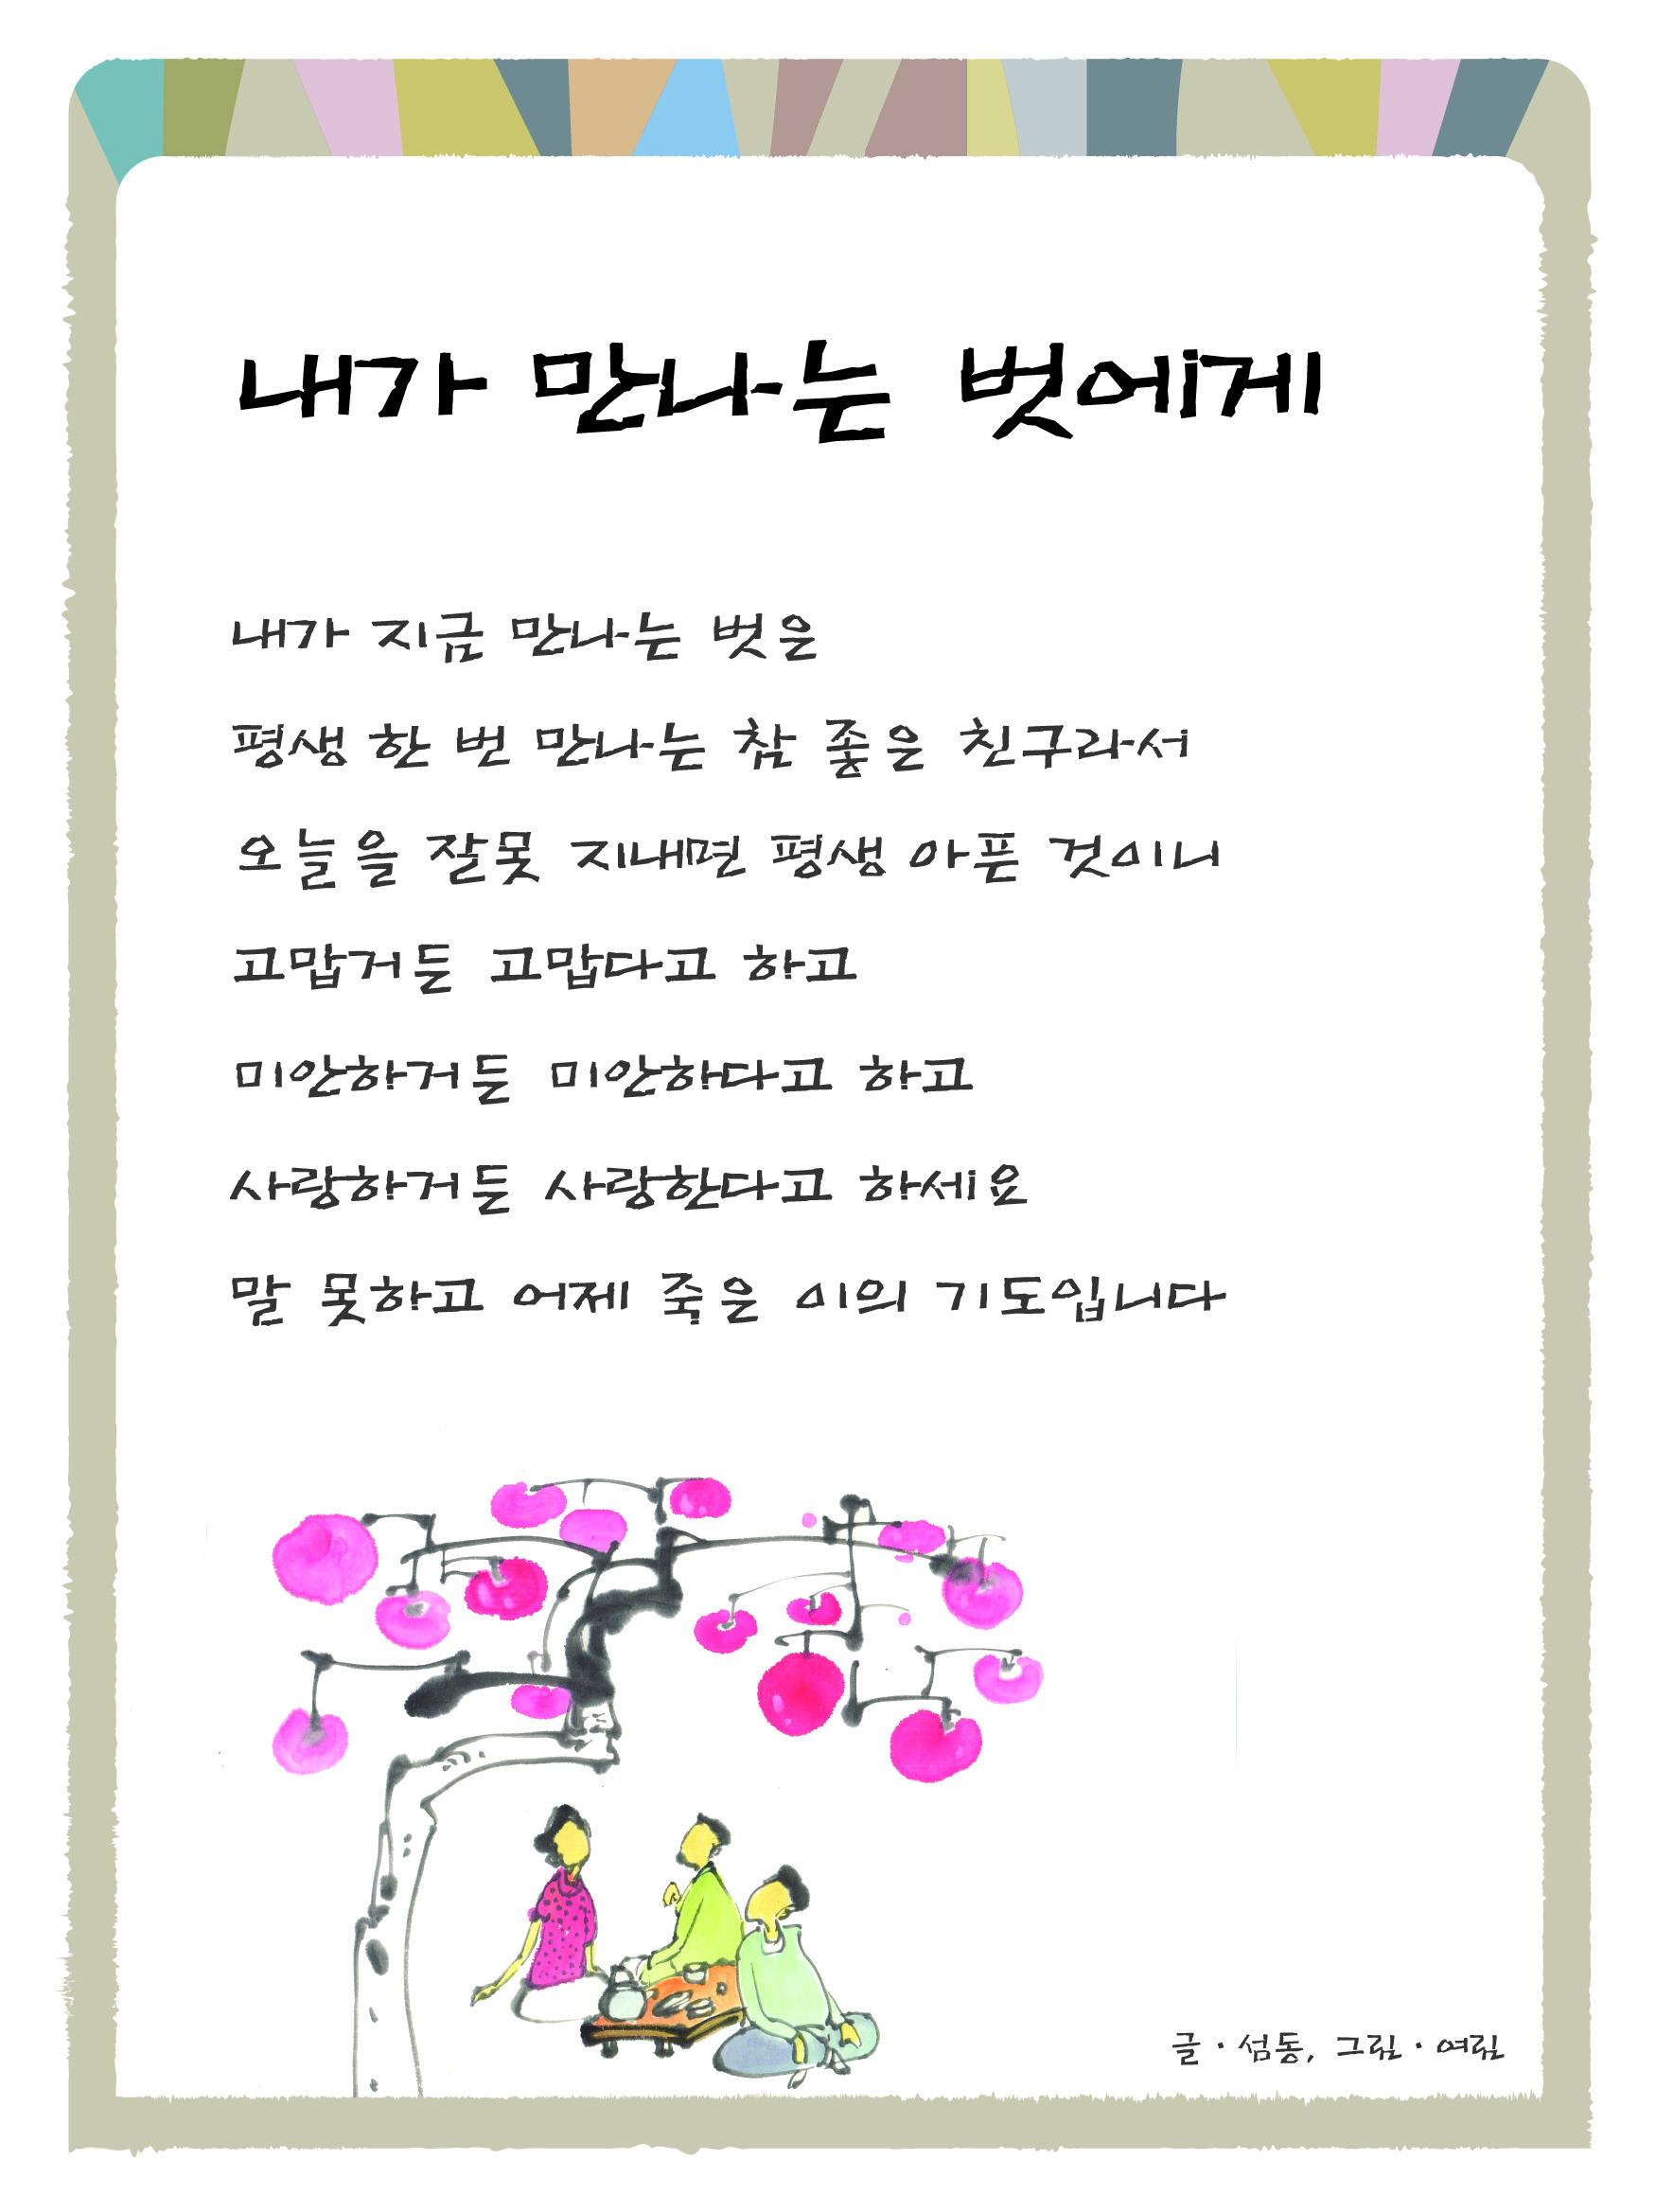 내가 만나는 벗에게
내가 지금 만나는 벗을
평생 한 번 만나는 참 좋은 친구라서
오늘을 잘못 지내면 평생 아픈 것이니
고맙거든 고맙다고 하고
미안하거든 미안하다고 하고
사랑하거든 사랑한다고 하세요
말 못하고 어제 죽은 이의 기도입니다
글 · 섬동, 그림 · 여림